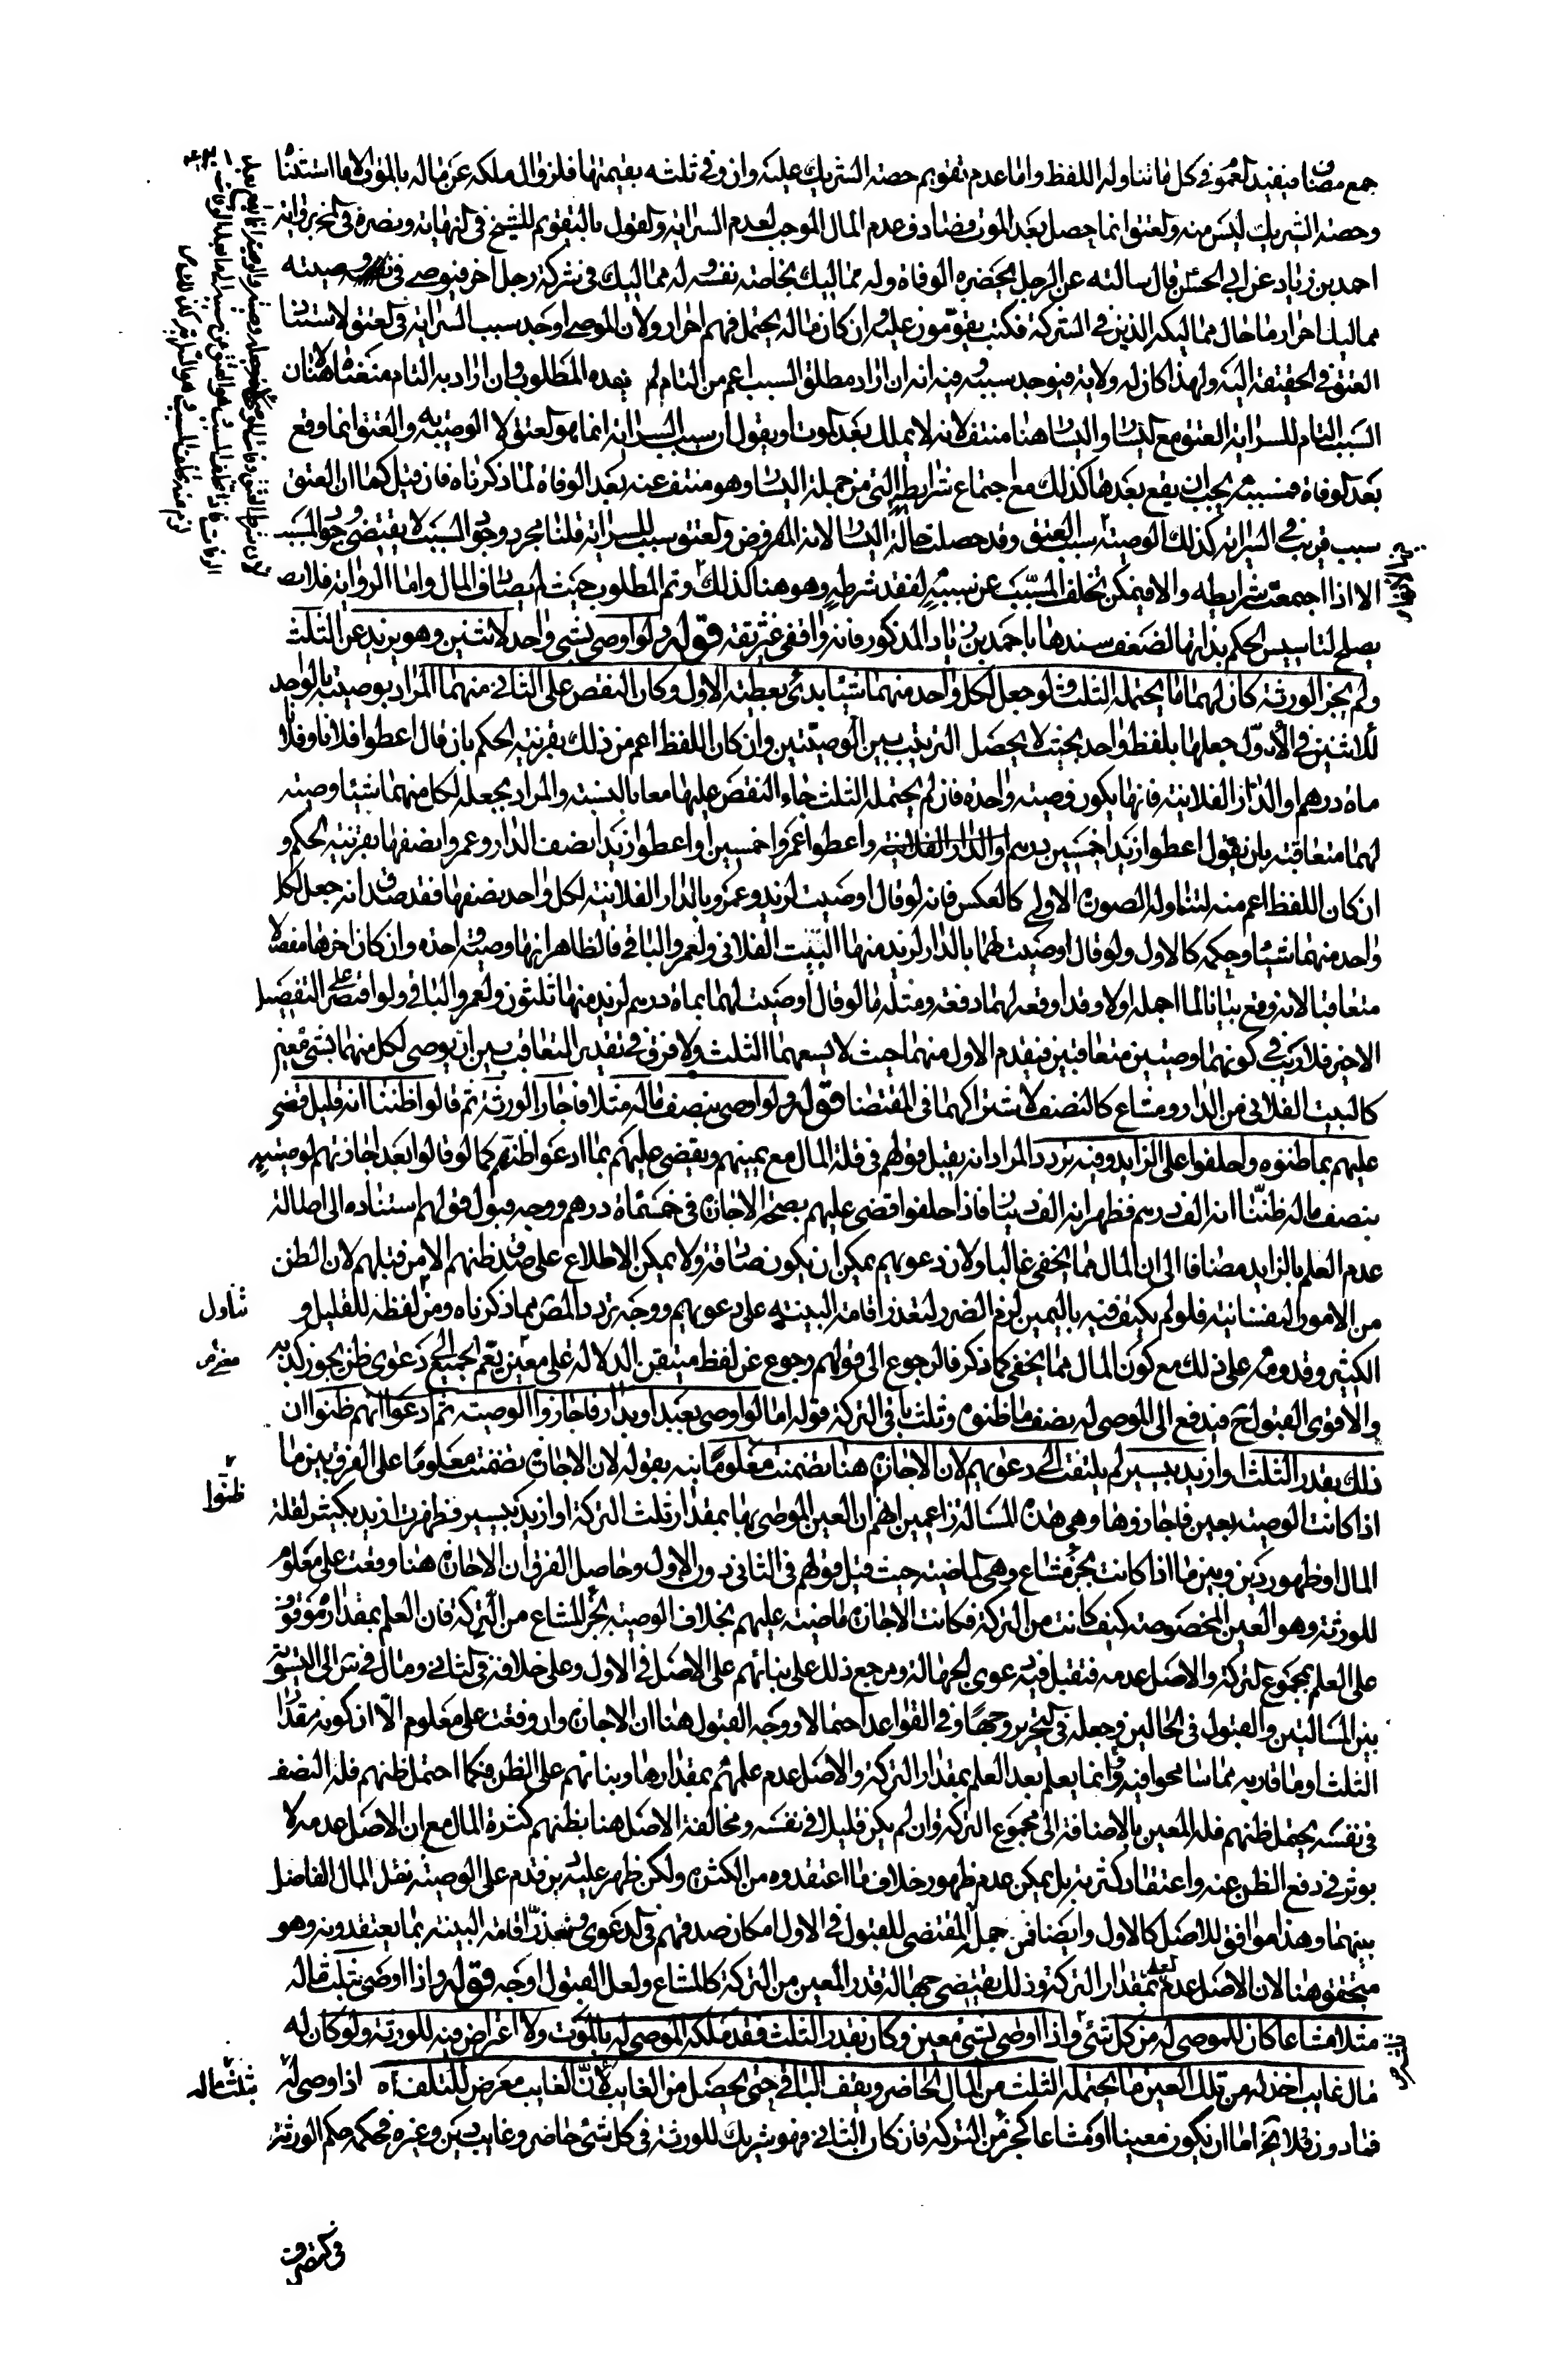 جمع مضاف فيفيد العموم في كل ما تناوله اللفظ واما عدم تقويم حصة الشريك عليه وان وفى ثلثه بقيمتها فلزوال ملكه عن ماله بالموت الا ما استثناه
وحصة الشريك ليس منه والعتق انما حصل بعد الموت فصادف عدم المال الموجب لعدم السراية والقول بالتقويم للشيخ في النهاية ونصره في المختلف برواية
احمد بن زياد عن ابي الحسن قال سالته عن الرجل يحضره الوفاة وله مماليك بخاصة نفسه وله مماليك في شركة رجل اخر فيوصي في وصيته
مماليك احرار ما حال مماليكه الذين في الشركة فكتب يقومون عليه ان كان ماله يحتمل فهم احرار ولان الموصي اوجد سبب السراية في العتق لاستناد
العتق في الحقيقة اليه ولهذا كان له ولاية فيوجد سببه وفيه انه ان اراد مطلق السبب اعم من التام لم يفده المطلوب وان اراد به التام منعناه هنا لان
السبب التام للسراية العتق مع اليسار واليسار هنا منتف لانه لا يملك بعد الموت او يقول ان سبب السراية انما هو العتق لا الوصية به والعتق انما وقع
بعد الوفاة فمسببه يجب ان يقع بعدها كذلك مع اجتماع شرايطه التي من جملة اليسار وهو منتف عنه بعد الوفاة لما ذكرناه فان قيل كما ان العتق
سبب قريب في السراية كذلك الوصية سبب العتق وقد حصلت حالة اليسار لانه المفروض والعتق سبب للسراية قلنا مجرد وجود السبب لا يقتضي وجود المسبب
الا اذا اجتمعت شرايطه والا فيمكن تخلف المسبب عن سببه لفقد شرطه وهو هنا كذلك وتم المطلوب حيث لم يصادف المال واما الرواية فلا
يصلح لتاسيس الحكم بذاتها لضعف سندها باحمد بن زياد المذكور فانه واقفي غير ثقة قوله ولو اوصى بشي واحد لاثنين وهو يزيد عن الثلث
ولم يجز الورثة كان لهما ما يحتمله الثلث ولو جعل لكل واحد منهما شيئا بدئ بعطية الاول وكان النقص على الثاني منهما المراد بوصيته بالواحد
للاثنين في الاول جعلها بلفظ واحد بحيث لا يحصل الترتيب بين الوصيتين وان كان اللفظ اعم من ذلك بقرينة الحكم بان قال اعطوا فلانا وفلانا
ماة درهم او الدار الفلانية فانها يكون وصية واحدة فان لم يحتمله الثلث جاء النقص عليهما معا بالنسبة والمراد بجعله لكل منهما شيئا وصيته
لهما متعاقبة بان يقول اعطوا زيدا خمسين درهم واعطوا عمروا خمسين او اعطوا زيدا نصف الدار وعمروا نصفها بقرينة الحكم و
ان كان اللفظ اعم منه لتناوله الصورة الاولى كالعكس فانه لو قال اوصيت لزيد وعمرو بالدار الفلانية لكل واحد نصفها فقد صدق انه جعل لكل
واحد منهما شيئا وحكمه كالاول ولو قال اوصيت لهما بالدار لزيد منها البيت الفلاني ولعمرو الباقي فالظاهر انها وصية واحدة وان كان اخرها مفصلا
متعاقبا لانه وقع بيانا لما اجمله اولا وقد اوقعه لهما دفعة ومثله ما لو قال اوصيت لهما بماة درهم لزيد منها ثلثون ولعمرو الباقي ولو اقتصر على التفصيل
الاخير فلا ريب في كونهما وصيتين متعاقبتين فيقدم الاول منهما حيث لا يسعهما الثلث ولا فرق في تقدير التعاقب بين ان يوصي لكل منهما بشي معين
كالبيت الفلاني من الدار ومشاع كالنصف لاشتراكهما في المقتضا قوله ولو اوصى بنصف ماله مثلا فاجاز الورثة ثم قالوا ظننا انه قليل قضي
عليهم بما ظنوه واحلفوا على الزايد وفيه تردد المراد انه يقبل قولهم في قلة المال مع يمينهم ويقضى عليهم بما ادعوا ظنه كما لو قالوا بعد اجازتهم لوصيته
بنصف ماله ظننا انه الف درهم فظهر انه الف دينار فاذا حلفوا قضي عليهم بصحة الاجازة في خمسماة درهم ووجه قبول قولهم استناده الى اصالة
عدم العلم بالزايد مضافا الى ان المال مما يخفى غالبا ولان دعويهم يمكن ان يكون صادقة ولا يمكن الاطلاع على صدق ظنهم الا من قبلهم لان الظن
من الامور النفسانية فلو لم يكتف فيه باليمين لزم الضرر لتعذر اقامة البينة على دعويهم ووجه تردد المص مما ذكرناه ومن لفظه للقليل و
الكثير وقدومه على ذلك مع كون المال مما يخفى كما ذكر فالرجوع الى قولهم رجوع عن لفظ متيقن الدلالة على معين يعم الجميع الى دعوى ظن يجوز كذبه
والاقوى القبول ح فيدفع الى الموصى له نصف ما ظنوه وثلث باقي التركة قوله اما لو اوصى بعبد او بدار فاجازوا الوصية ثم ادعوا انهم ظنوا ان
ذلك بقدر الثلث او ازيد بيسير لم يلتفت الى دعويهم لان الاجازة هنا تضمنت معلوما نبه بقوله لان الاجازة تضمنت معلوما على الفرق بين ما
اذا كانت الوصية بعين فاجازوها وهي هذه المسالة زاعمين انهم ان العين الموصى بها بمقدار ثلث التركة او ازيد بيسير فظهرت ازيد بكثير لقلة
المال او ظهور دين وبين ما اذا كانت بجزء مشاع وهي الماضية حيث قبل قولهم في الثاني دون الاول وحاصل الفرق ان الاجازة هنا وقعت على معلوم
للورثة وهو العين المخصوصة كيف كانت من التركة فكانت الاجازة ماضية عليهم بخلاف الوصية بالجزء المشاع من التركة فان العلم بمقداره موقوف
على العلم بمجموع التركة والاصل عدمه فتقبل فيه دعوى الجهالة ومرجع ذلك على بنائهم على الاصل في الاول وعلى خلافه في الثاني ومال في س الى التسوية
بين المسالتين والقبول في الحالين وجعله في التحرير وجها وفي القواعد احتمالا ووجه القبول هنا ان الاجازة وان وقعت على معلوم الا ان كونه مقدار
الثلث او ما قاربه مما تسامحوا فيه انما يعلم بعد العلم بمقدار التركة والاصل عدم علمهم بمقدارها وبنائهم على الظن فكما احتمل ظنهم قلة النصف
في نفسه يحتمل ظنهم قلة المعين بالاضافة الى مجموع التركة وان لم يكن قليلا في نفسه ومخالفة الاصل هنا بظنهم كثرة المال مع ان الاصل عدمه لا
يوثر في دفع الظن عنه واعتقاد كثرته بل يمكن عدم ظهور خلاف ما اعتقدوه من الكثرة ولكن ظهر عليه دين قدم على الوصية فقل المال الفاضل
بينهما وهذا موافق للاصل كالاول وايضا فمن جملة المقتضي للقبول في الاول امكان صدقهم في الدعوى وتعذر اقامة البينة بما يعتقدونه وهو
متحقق هنا لان الاصل عدم العلم بمقدار التركة وذلك يقتضي جهالة قدر المعين من التركة كالمشاع ولعل القبول اوجه قوله واذا اوصى بثلث ماله
مثلا مشاعا كان للموصى له من كل شئ واذا اوصى بشئ معين وكان بقدر الثلث فقد ملكه الموصى له بالموت ولا اعتراض فيه للورثة ولو كان له
مال غايب اخذ له من تلك العين ما يحتمله الثلث من المال الحاضر ويقف الباقي حتى يحصل من الغايب لان الغايب معرض للتلف اه اذا وصي له
فما دون فلا يخ اما ان يكون معينا او مشاعا كجزء من التركة فان كان الثاني فهو شريك للورثة في كل شئ حاضر وغايب دين وغيره فحكمه حكم الورثة
تناول
ظنوا
بثلث ماله